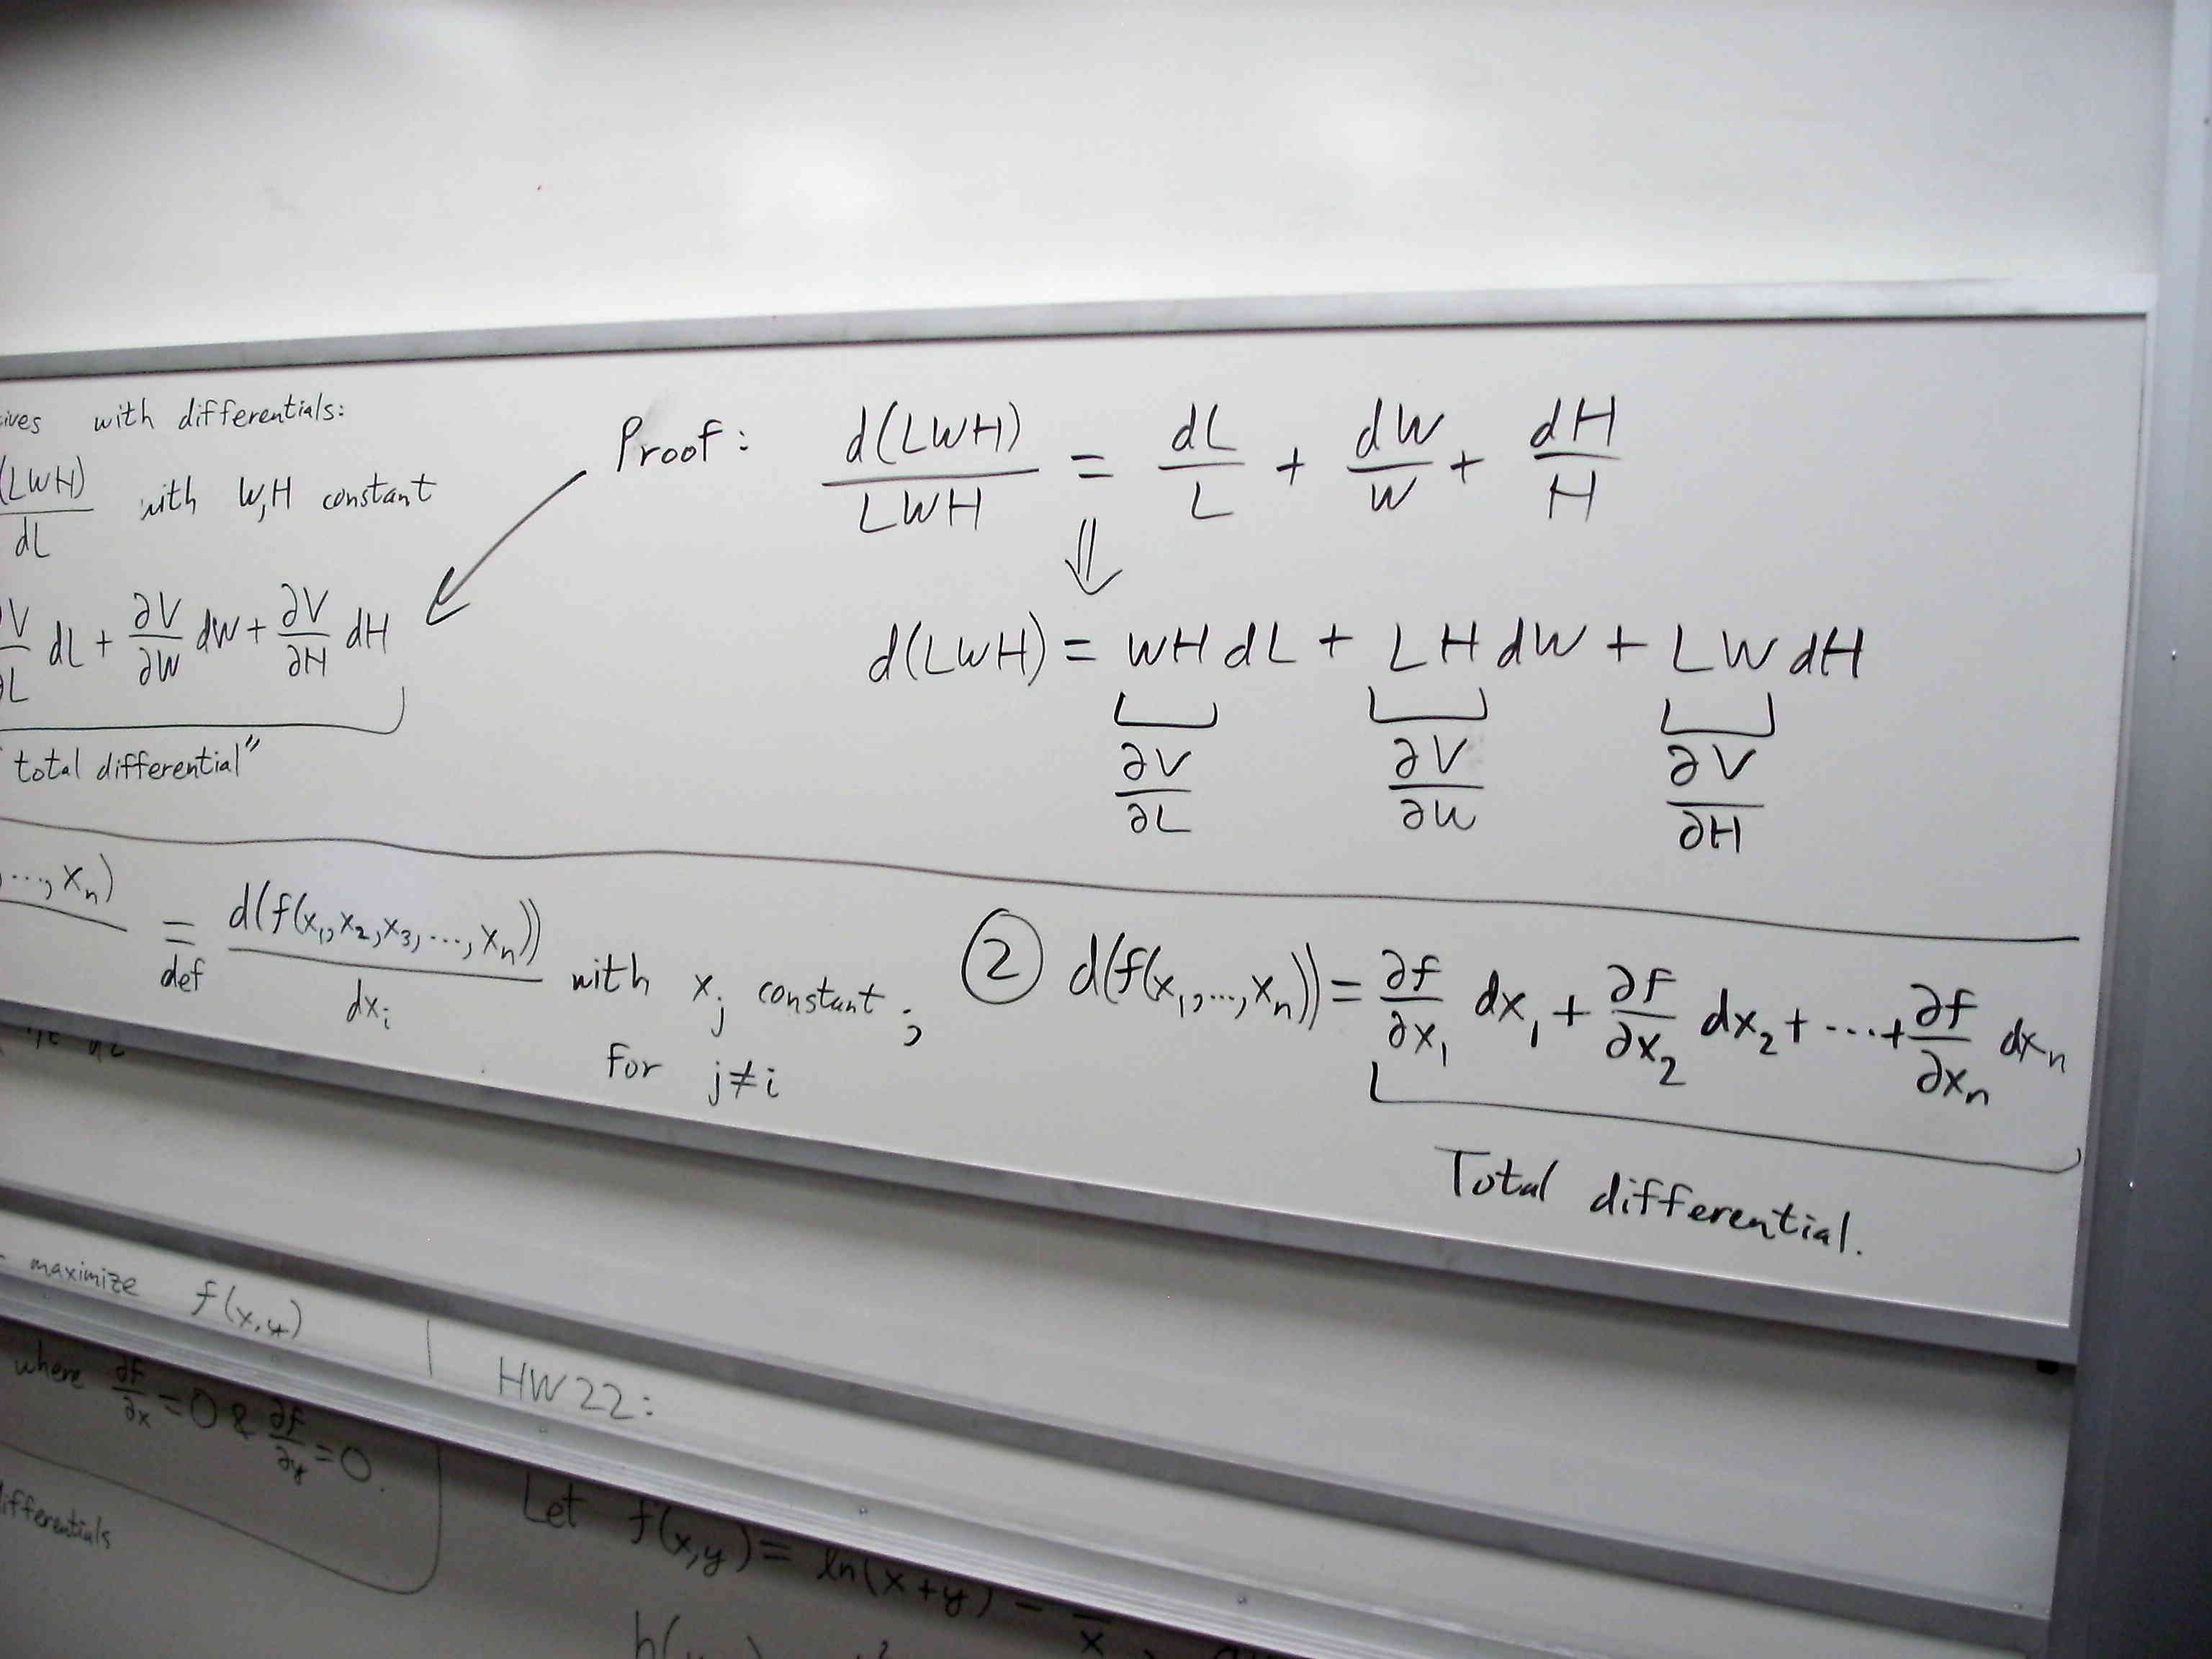 with differentials:
(LWH)/dL with W,H constant
∂V/∂L dL + ∂V/∂W dW + ∂V/∂H dH
total differential"
Proof: d(LWH)/LWH = dL/L + dW/W + dH/H
⇓
d(LWH) = WH dL + LH dW + LW dH
∂V/∂L ∂V/∂W ∂V/∂H
..., xₙ) =
def
d(f(x₁, x₂, x₃, ..., xₙ))/dxᵢ with xⱼ constant ;
for j≠i
② d(f(x₁, ..., xₙ)) = ∂f/∂x₁ dx₁ + ∂f/∂x₂ dx₂ + ... + ∂f/∂xₙ dxₙ
Total differential.
maximize f(x,y)
where ∂f/∂x = 0 & ∂f/∂y = 0.
differentials
HW22:
Let f(x,y) = ln(x+y) –